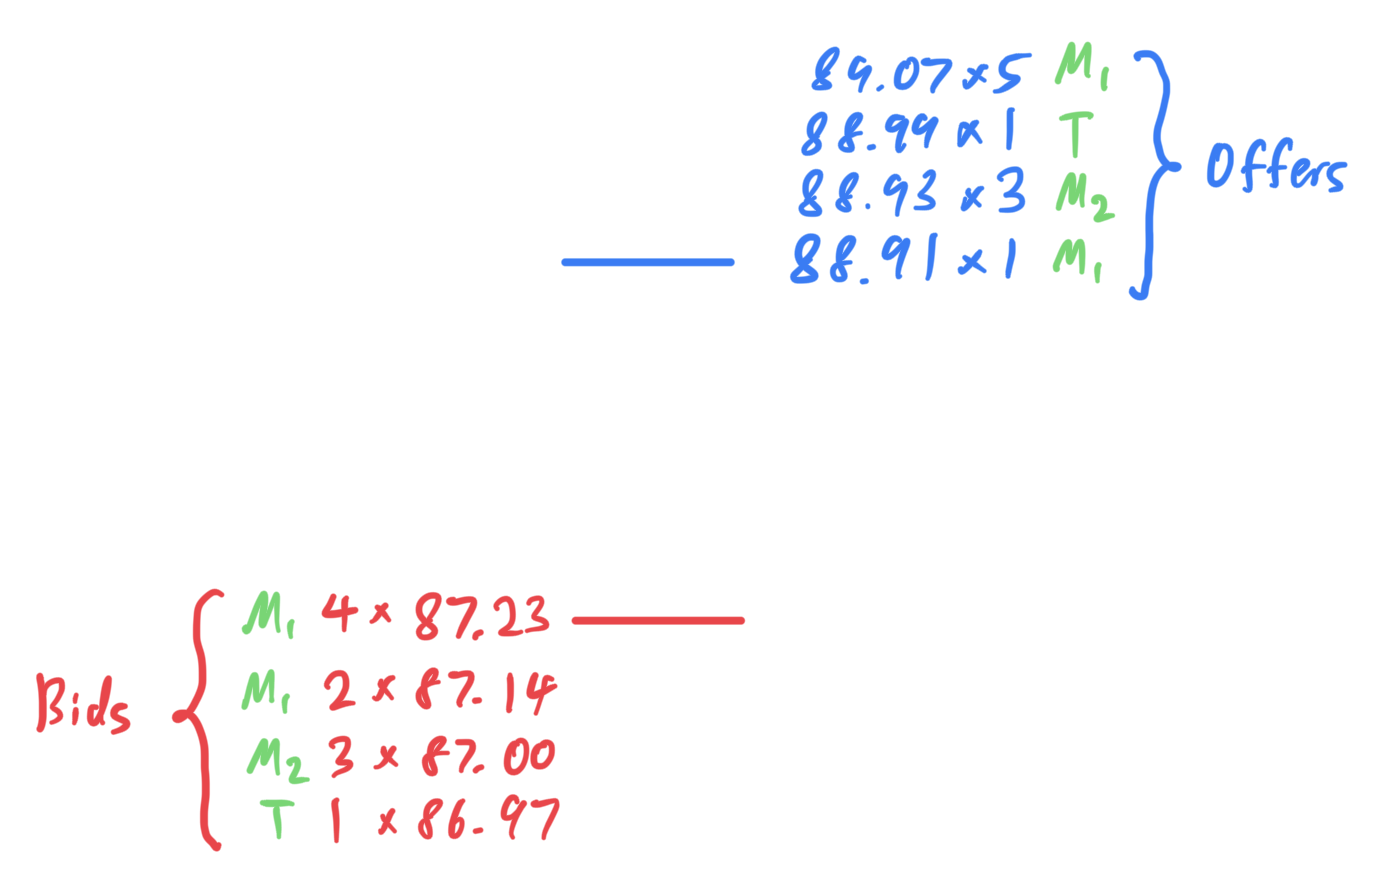 89.07 × 5 M₁
88.99 × 1 T
88.93 × 3 M₂
88.91 × 1 M₁
Offers
M₁ 4 × 87.23
M₁ 2 × 87.14
M₂ 3 × 87.00
T 1 × 86.97
Bids